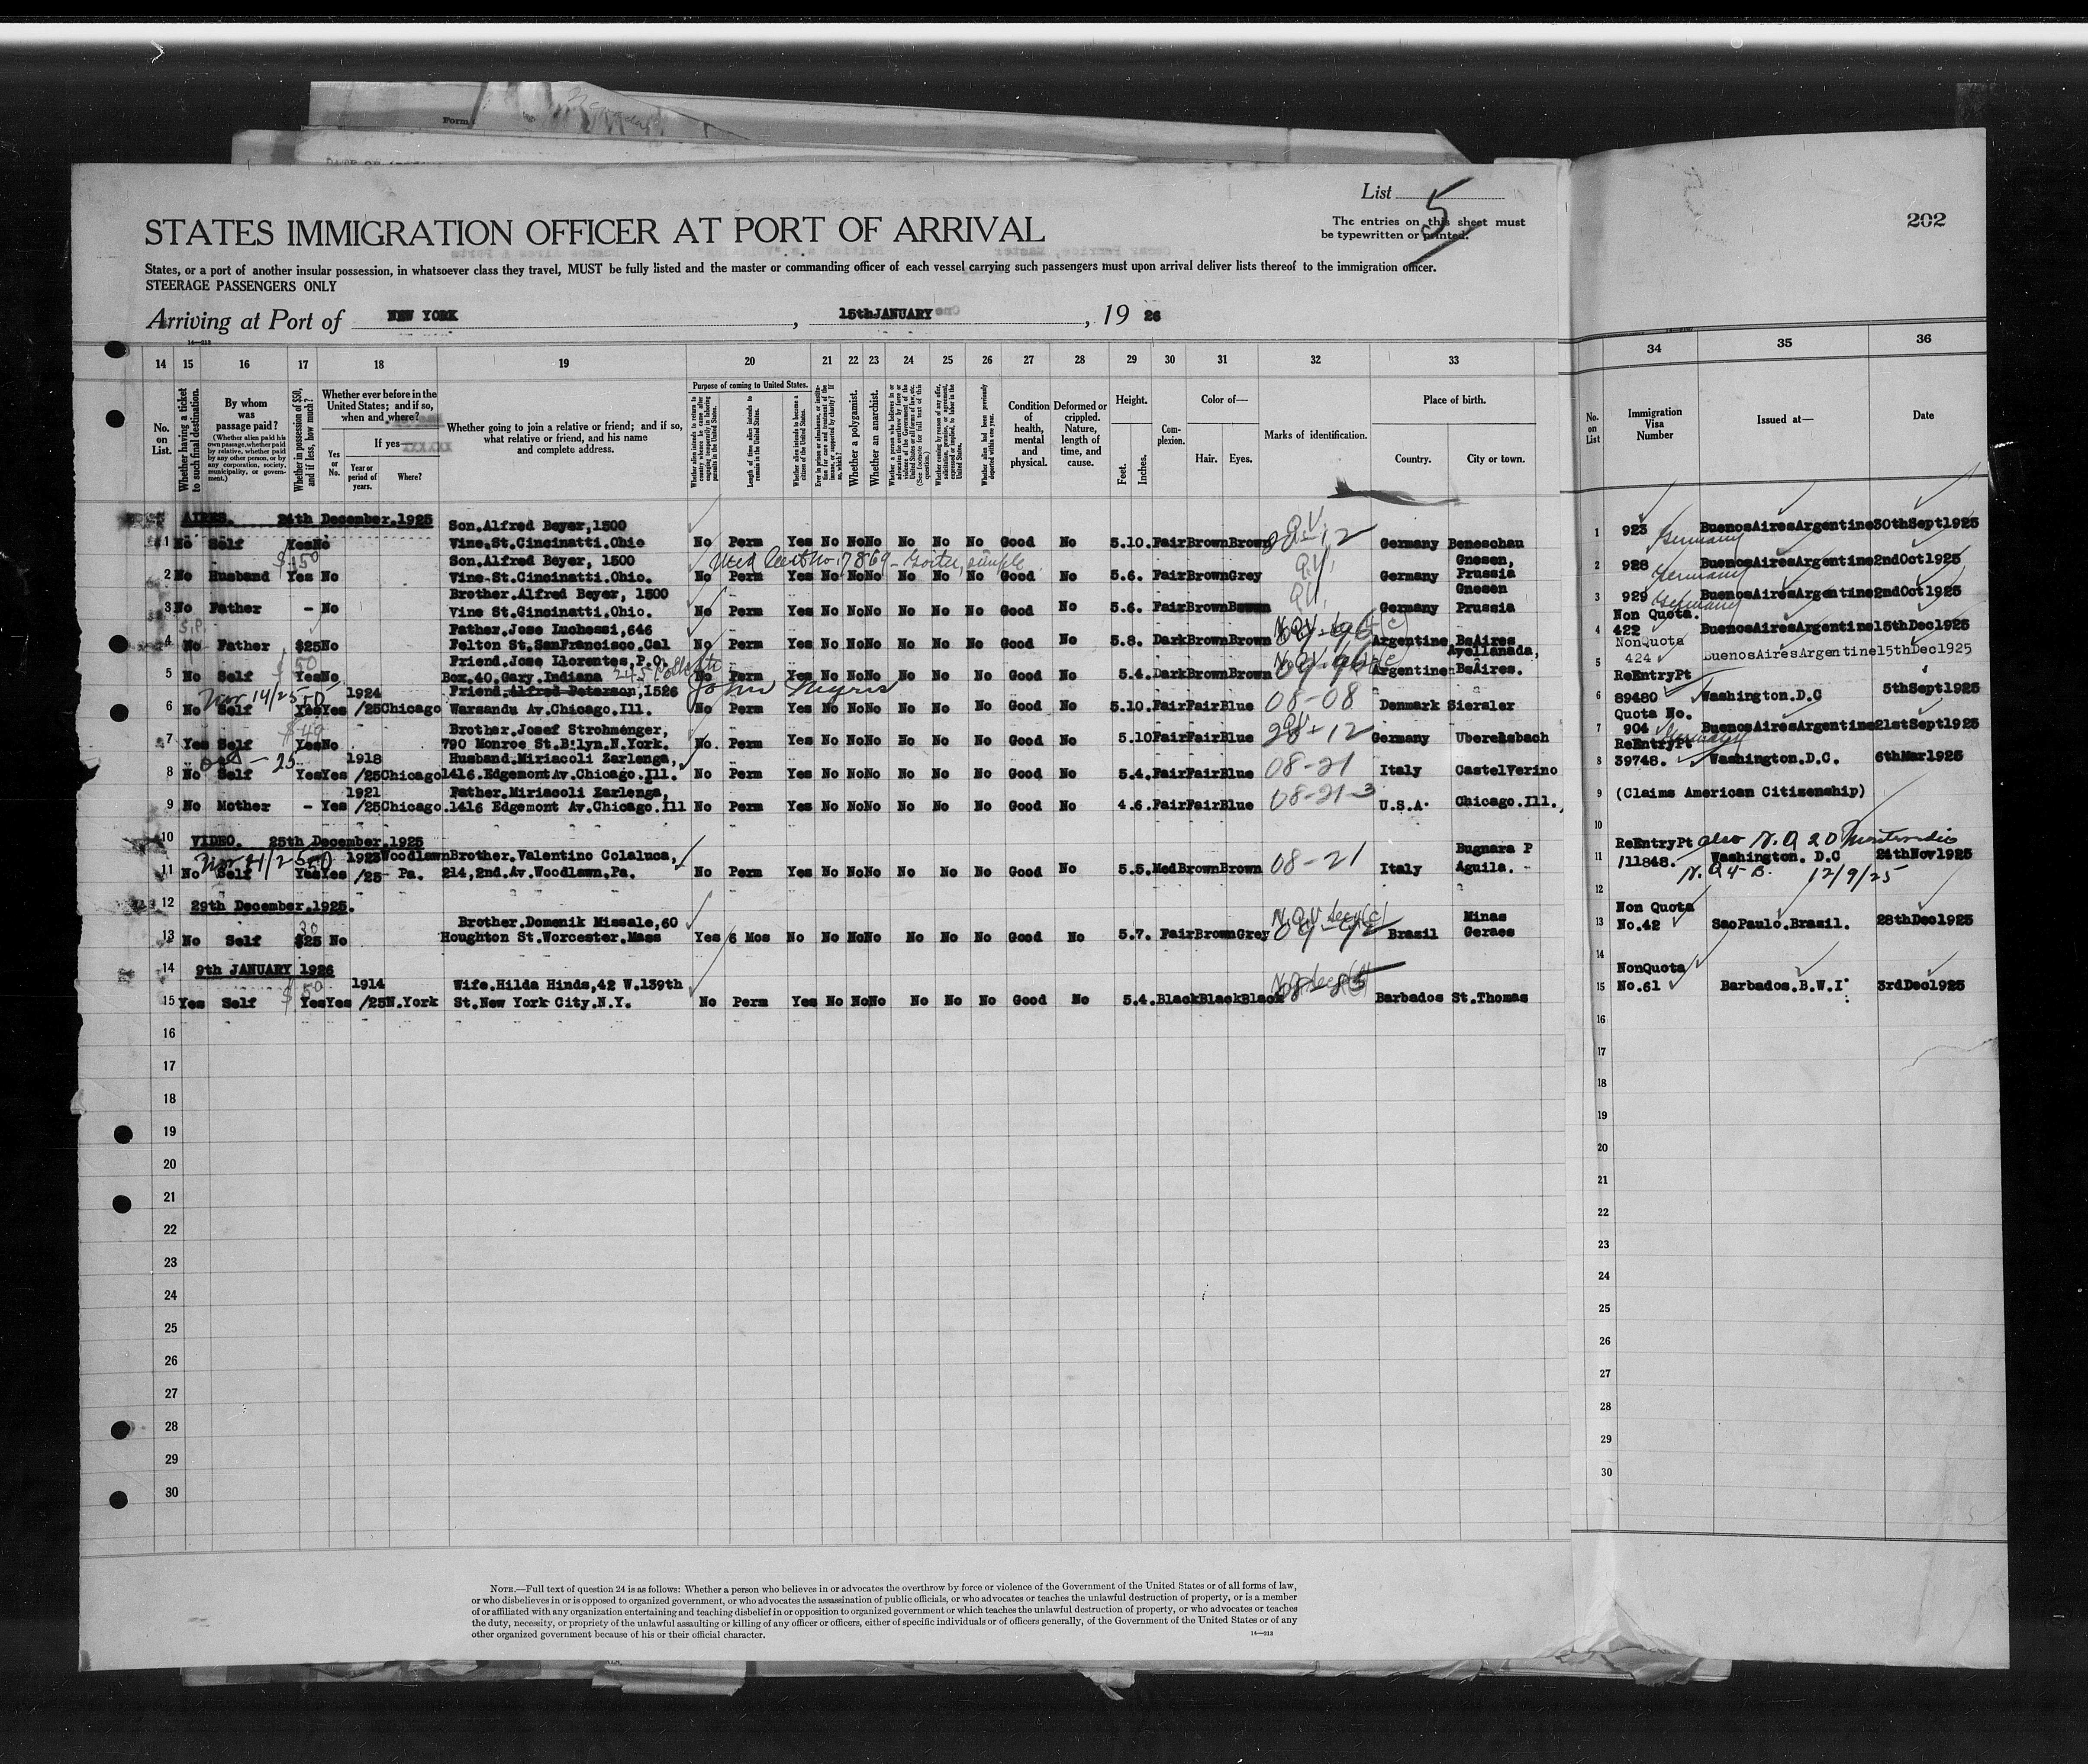 Form
List 5
The entries on this sheet must
be typewritten or printed.
202
STATES IMMIGRATION OFFICER AT PORT OF ARRIVAL
States, or a port of another insular possession, in whatsoever class they travel, MUST be fully listed and the master or commanding officer of each vessel carrying such passengers must upon arrival deliver lists thereof to the immigration officer.
STEERAGE PASSENGERS ONLY
Arriving at Port of NEW YORK, 15thJANUARY, 19 26
14 15 16 17 18 19 20 21 22 23 24 25 26 27 28 29 30 31 32 33 34 35 36
No. on List.
Whether having a ticket to such final destination.
By whom was passage paid?
(Whether alien paid his own passage, whether paid by relative, whether paid by any other person, or by any corporation, society, municipality, or government.)
Whether in possession of $50, and if less, how much?
Whether ever before in the United States; and if so, when and where?
If yes—
Yes or No.
Year or period of years.
Where?
Whether going to join a relative or friend; and if so, what relative or friend, and his name and complete address.
Purpose of coming to United States.
Length of time alien intends to remain in the United States.
Whether alien intends to become a citizen of the United States.
Whether a polygamist.
Whether an anarchist.
Condition of health, mental and physical.
Deformed or crippled. Nature, length of time, and cause.
Height.
Feet.
Inches.
Complexion.
Color of—
Hair.
Eyes.
Marks of identification.
Place of birth.
Country.
City or town.
No. on List
Immigration Visa Number
Issued at—
Date
AIRES. 24th December.1925
Son.Alfred Beyer,1500
1 No Self YesNo Vine.St.Cincinatti.Ohio No Perm Yes No NoNo No No No Good No 5.10.FairBrownBrown Germany Beneschau 1 923 Germany BuenosAiresArgentine30thSept1925
$50 Son.Alfred Beyer, 1500 Q.V. Gnesen,
2 No Husband Yes No Vine-St.Cincinatti.Ohio. No Perm Yes No NoNo No No No Good No 5.6. FairBrownGrey Germany Prussia 2 928 Germany BuenosAiresArgentine2ndOct1925
Brother.Alfred Beyer, 1500 Q.V. Gnesen
3 No Father - No Vine St.Cincinatti.Ohio. No Perm Yes No NoNo No No No Good No 5.6. FairBrown Germany Prussia 3 929 Germany BuenosAiresArgentine2ndOct1925
S.P. Father.Jose Inchessi,646 Non Quota.
4 No Father $25No Felton St.SanFrancisco.Cal No Perm Yes No NoNo No No No Good No 5.8. DarkBrownBrown Argentine BsAires 4 422 BuenosAiresArgentine15thDec1925
50 Friend.Jose Llorentes,P.O. Avellanada, NonQuota
5 No Self YesNo Box.40.Gary.Indiana No Perm Yes No NoNo No No No Good No 5.4.DarkBrownBrown Argentine BsAires. 5 424 BuenosAiresArgentine15thDec1925
Nov 14/25 1924 Friend.Alfred Peterson,1526 John 08-08 ReEntryPt
6 No Self YesYes /25Chicago Warsandu Av.Chicago.Ill. No Perm Yes No NoNo No No No Good No 5.10.FairFairBlue Denmark Siersler 6 89480 Washington.D.C 5thSept1925
$49 Brother.Josef Strohmenger, Quota No.
7 Yes Self YesNo 790 Monroe St.B'lyn.N.York. No. Perm Yes No NoNo No No No Good No 5.10FairFairBlue Germany Ubereksbach 7 904 Germany BuenosAiresArgentine21stSept1925
1918 Husband.Miriacoli Zarlenga, 08-21 ReEntryPt
8 No Self YesYes /25Chicago 1416.EdgemontAv.Chicago.Ill. No Perm Yes No NoNo No No No Good No 5.4.FairFairBlue Italy CastelVerino 8 39748. Washington.D.C. 6thMar1925
1921 Father.Miriacoli Zarlenga, 08-21-3
9 No Mother - Yes /25Chicago.1416 Edgemont Av.Chicago.Ill No Perm Yes No NoNo No No No Good No 4.6.FairFairBlue U.S.A. Chicago.Ill. 9 (Claims American Citizenship)
10 VIDEO. 25th December.1925 10
Nov 21/25 1923 Woodlawn Brother.Valentino Colaluca, 08-21 Bugnara P ReEntryPt also N.Q 20 Montevideo
11 No Self YesYes /25- Pa. 214,2nd.Av.Woodlawn.Pa. No Perm Yes No NoNo No No No Good No 5.5.MedBrownBrown Italy Aguila. 11 /11848. Washington. D.C 24thNov1925
N.Q 4-B. 12/9/25
12 29th December.1925. 12
30 Brother.Domenik Missale,60 Minas Non Quota
13 No Self $25 No Houghton St.Worcester.Mass Yes 6 Mos No No NoNo No No No Good No 5.7. FairBrownGrey Brazil Geraes 13 No.42 SaoPaulo.Brazil. 28thDec1925
14 9th JANUARY 1926 14
$50 1914 Wife.Hilda Hinds,42 W.139th NonQuota
15 Yes Self YesYes /25N.York St.New York City.N.Y. No Perm Yes No NoNo No No No Good No 5.4.BlackBlackBlack Barbados St.Thomas 15 No.61 Barbados.B.W.I 3rdDec1925
16 16
17 17
18 18
19 19
20 20
21 21
22 22
23 23
24 24
25 25
26 26
27 27
28 28
29 29
30 30
NOTE.—Full text of question 24 is as follows: Whether a person who believes in or advocates the overthrow by force or violence of the Government of the United States or of all forms of law,
or who disbelieves in or is opposed to organized government, or who advocates the assassination of public officials, or who advocates or teaches the unlawful destruction of property, or is a member
of or affiliated with any organization entertaining and teaching disbelief in or opposition to organized government or which teaches the unlawful destruction of property, or who advocates or teaches
the duty, necessity, or propriety of the unlawful assaulting or killing of any officer or officers, either of specific individuals or of officers generally, of the Government of the United States or of any
other organized government because of his or their official character.
14—213